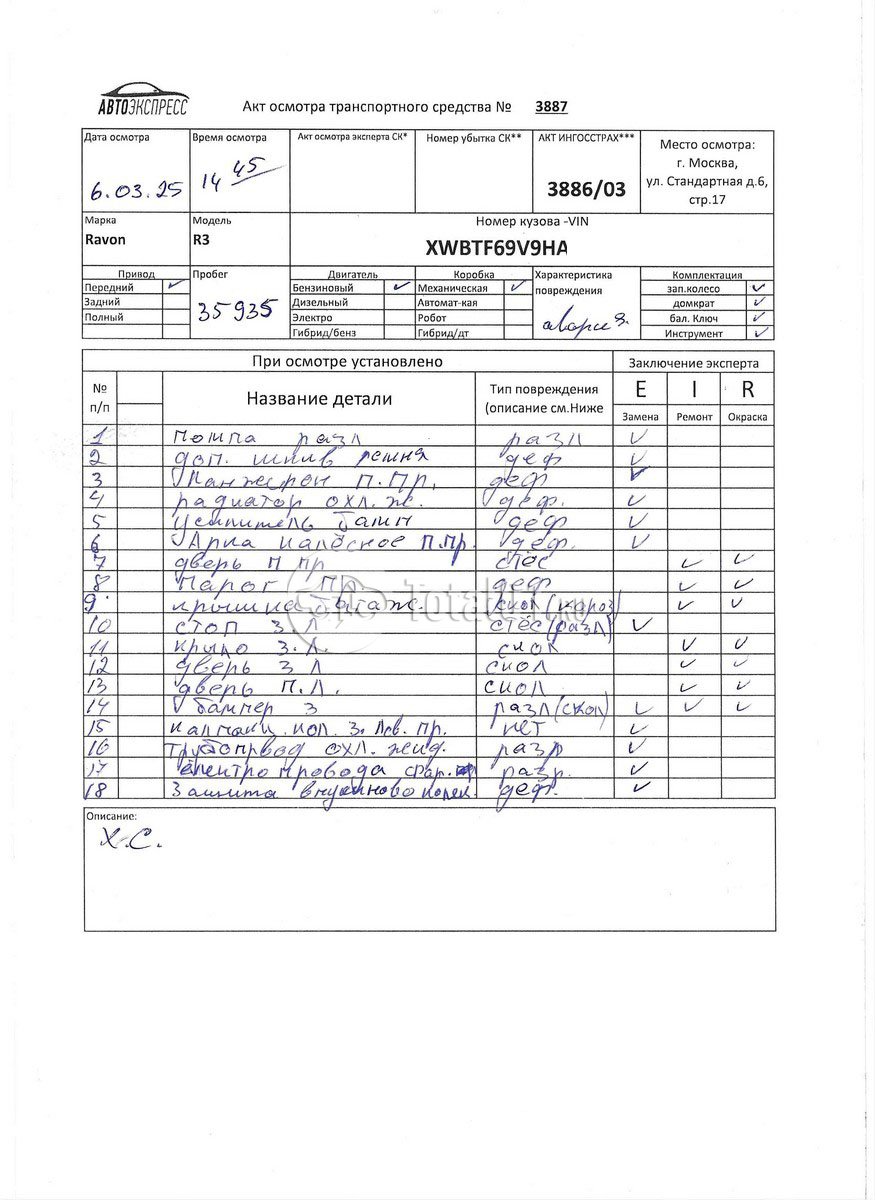 АВТОЭКСПРЕСС
Акт осмотра транспортного средства № 3887
Дата осмотра Время осмотра Акт осмотра эксперта СК* Номер убытка СК** АКТ ИНГОССТРАХ*** Место осмотра:
г. Москва,
ул. Стандартная д.6,
стр.17
6.03.25 14 45 3886/03
Марка Модель Номер кузова -VIN
Ravon R3 XWBTF69V9HA
Привод Пробег Двигатель Коробка Характеристика Комплектация
Передний ✓ Бензиновый ✓ Механическая ✓ повреждения зап.колесо ✓
Задний 35935 Дизельный Автомат-кая домкрат ✓
Полный Электро Робот бал. Ключ ✓
Гибрид/бенз Гибрид/дт Инструмент ✓
При осмотре установлено Заключение эксперта
№ п/п Название детали Тип повреждения (описание см.Ниже E I R
Замена Ремонт Окраска
1 помпа разл разл ✓
2 доп. шкив ремня деф ✓
3 Лонжерон П.Пр. деф ✓
4 радиатор охл. ж. деф. ✓
5 Усилитель деф ✓
6 Арка колёсное П.Пр. деф. ✓
7 дверь П пр стёс ✓ ✓
8 Парог П деф ✓ ✓
9 крышка багаж. скол (кароз) ✓ ✓
10 стоп З.Л стёс(разл) ✓
11 крыло З.Л. скол ✓ ✓
12 дверь З Л скол ✓ ✓
13 дверь П.Л. скол ✓ ✓
14 бампер З разл(скол) ✓ ✓ ✓
15 калпаки кол. З. пр. нет ✓
16 охл. жид. разр ✓
17 електро провода разр. ✓
18 Защита деф. ✓
Описание:
Х-С.
TotalAuto.ru